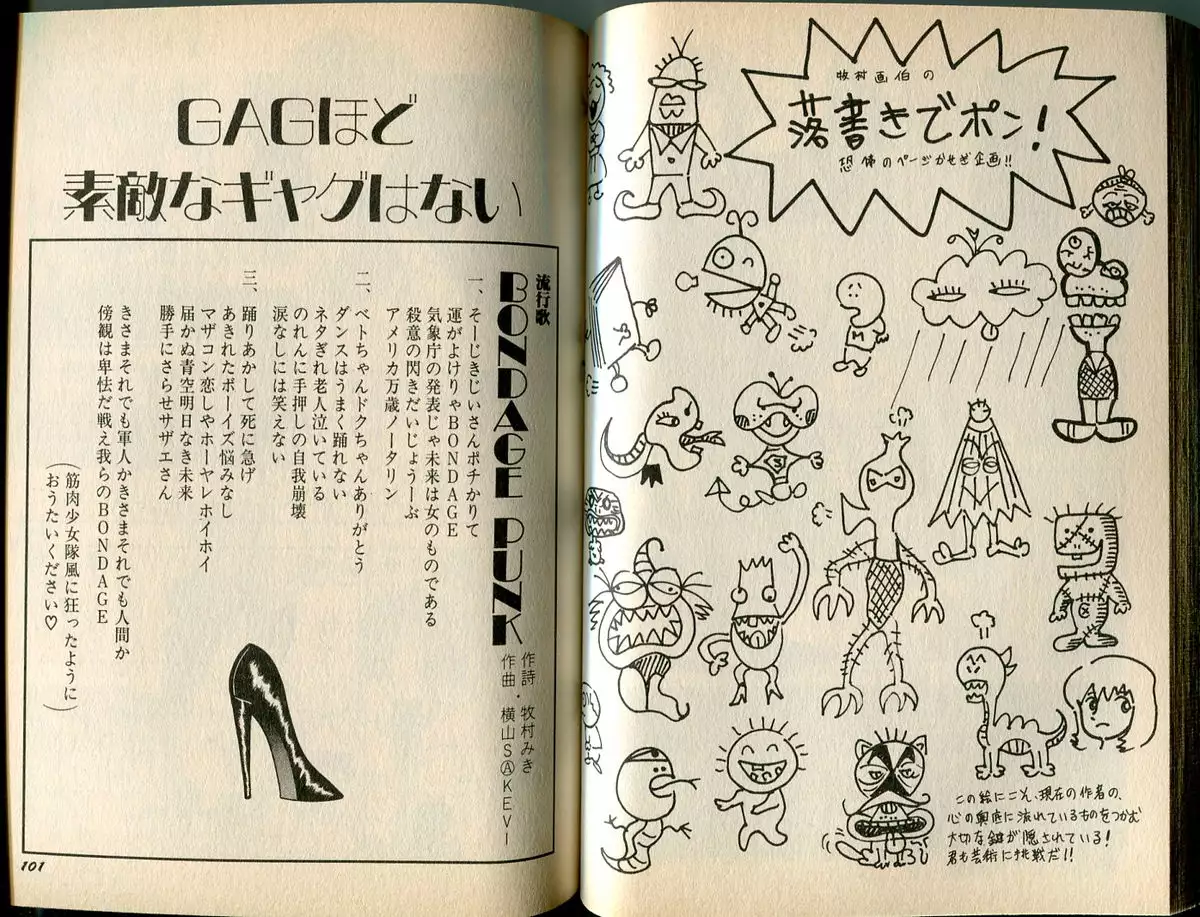 牧村画伯の
落書きでポン!
恐怖のページかせぎ企画!!
M
S
この絵にこそ、現在の作者の、
心の奥底に流れているものをつかむ
大切な鍵が隠されている!
君も芸術に挑戦だ!!
GAGほど
素敵なギャグはない
流行歌
BONDAGE PUNK
作詩・牧村みき
作曲・横山SⒶKEVI
一、そーじきじいさんポチかりて
運がよけりゃBONDAGE
気象庁の発表じゃ未来は女のものである
殺意の閃きだいじょうーぶ
アメリカ万歳ノータリン
二、ベトちゃんドクちゃんありがとう
ダンスはうまく踊れない
ネタぎれ老人泣いている
のれんに手押しの自我崩壊
涙なしには笑えない
三、踊りあかして死に急げ
あきれたボーイズ悩みなし
マザコン恋しやホーヤレホイホイ
届かぬ青空明日なき未来
勝手にさらせサザエさん
きさまそれでも軍人かきさまそれでも人間か
傍観は卑怯だ戦え我らのBONDAGE
(筋肉少女隊風に狂ったように
おうたいください♡)
101